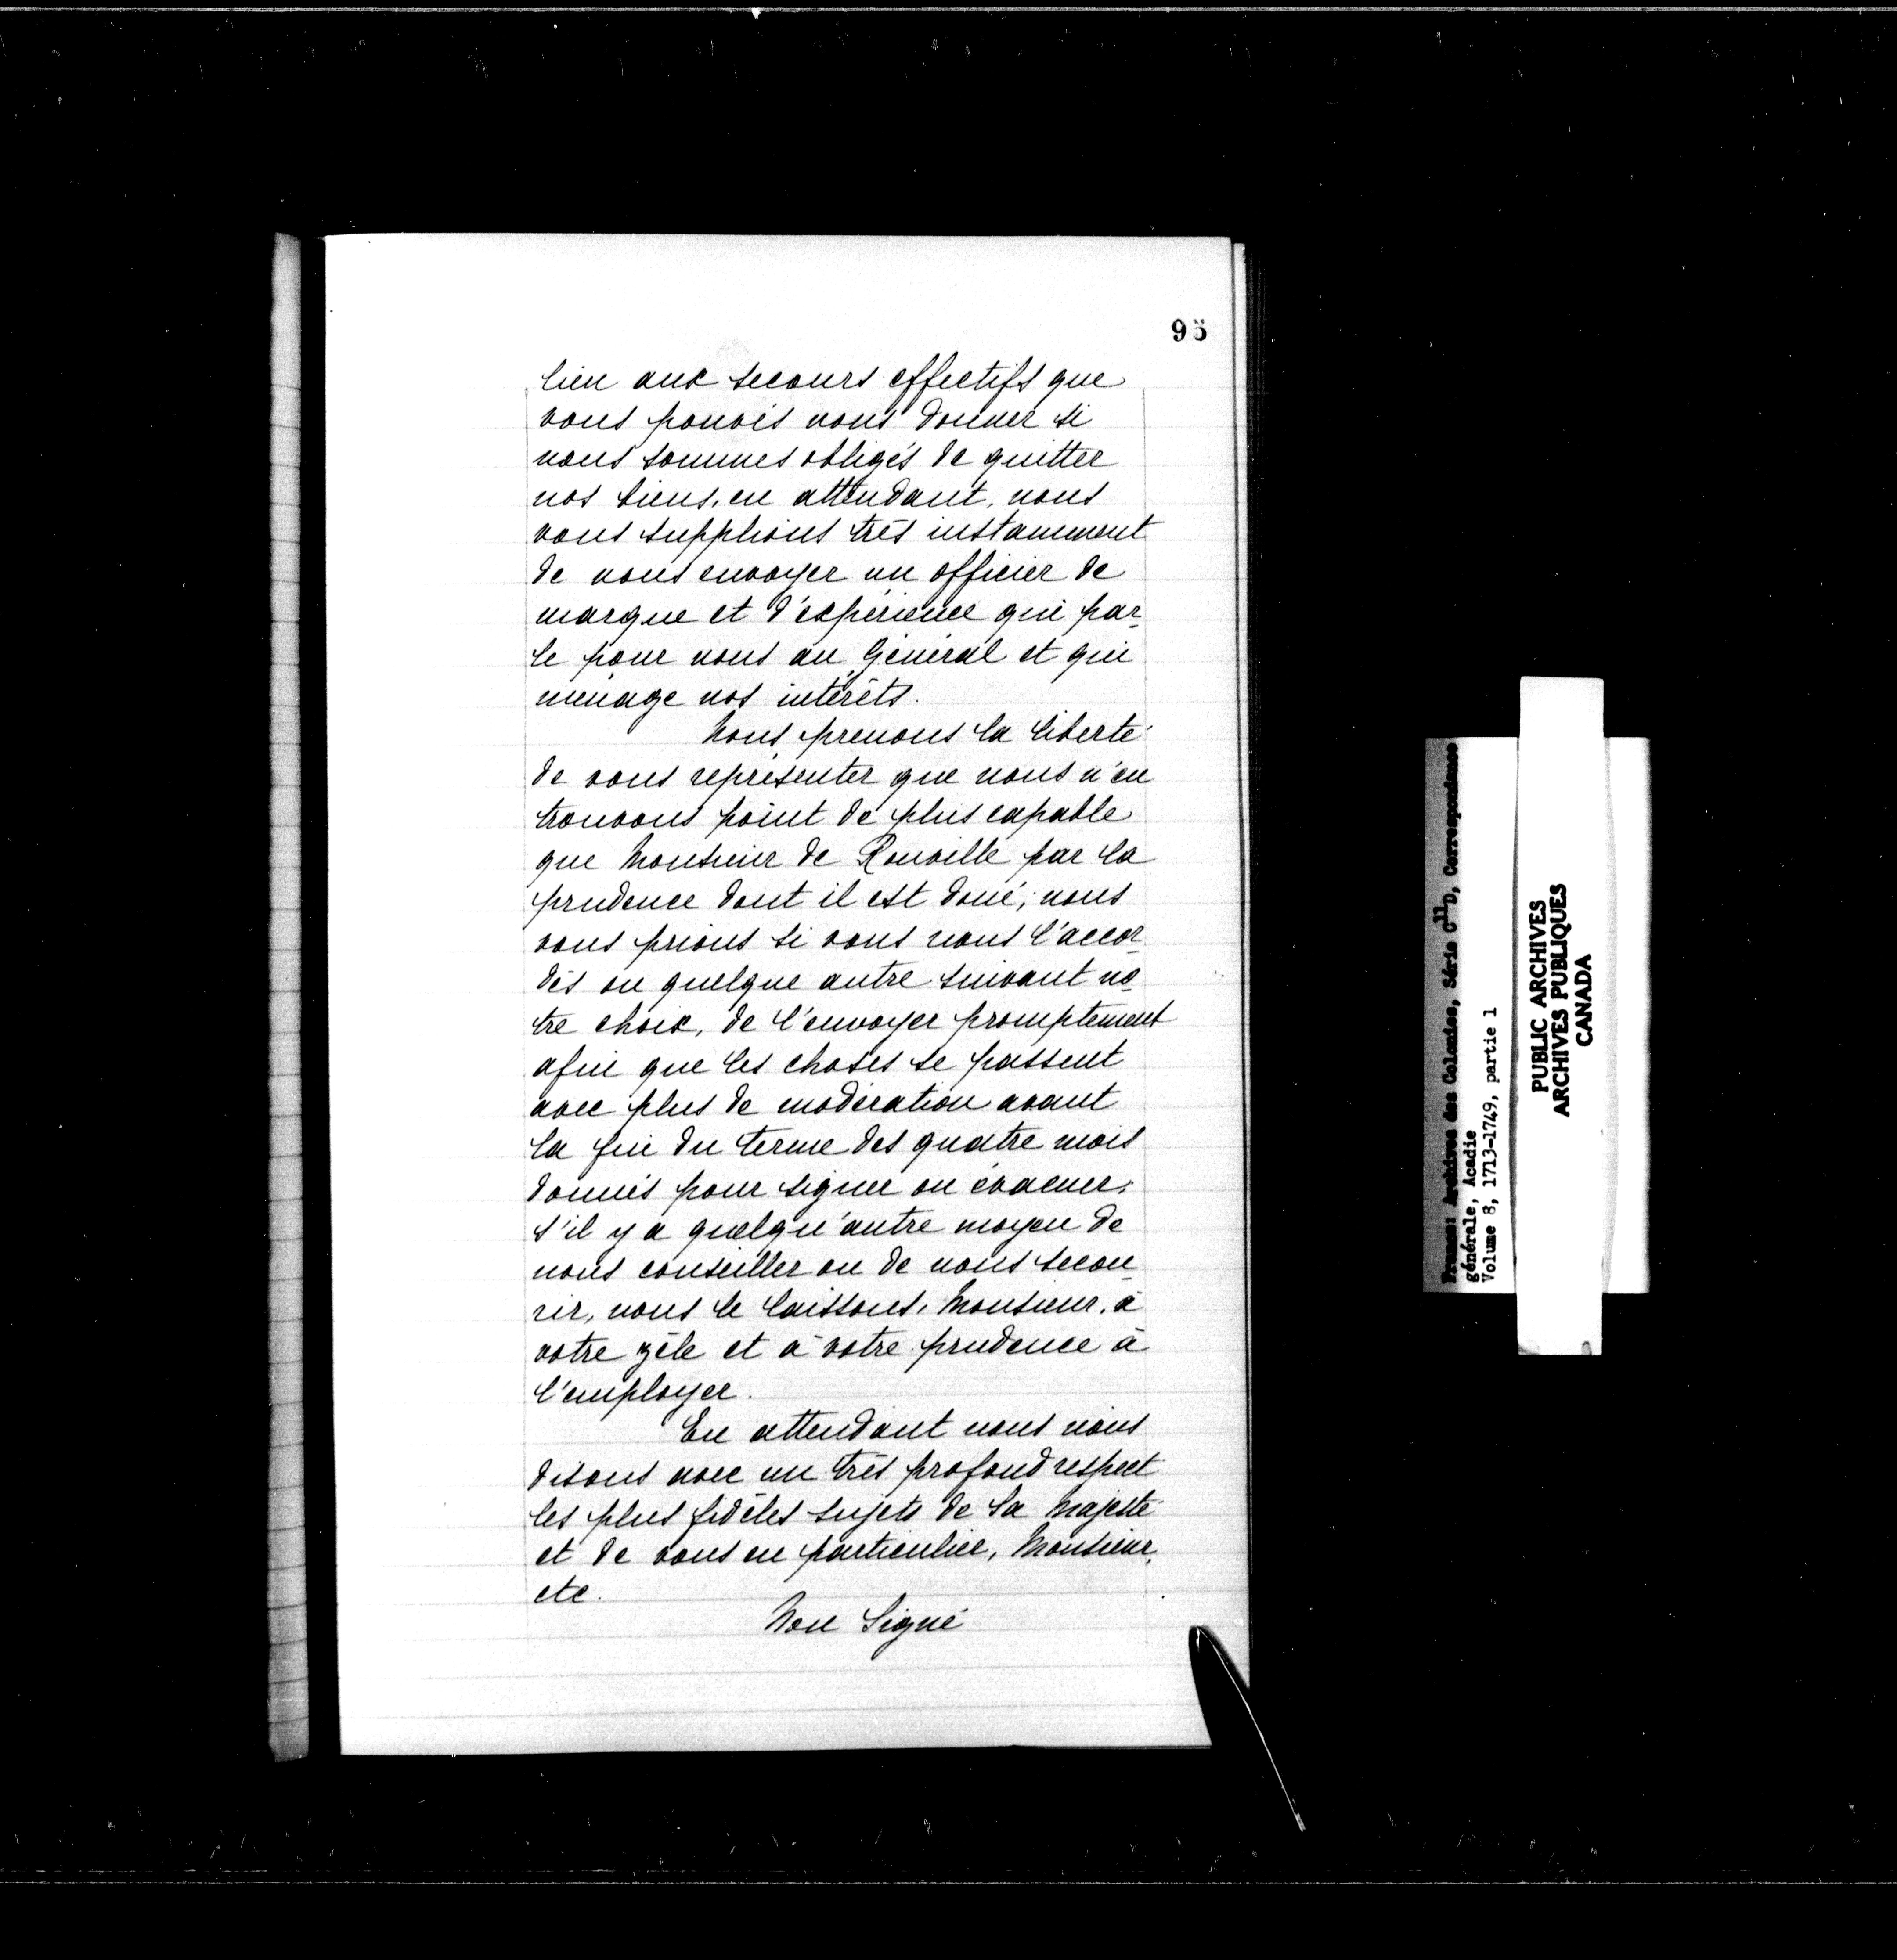 95
lieu aux secours effectifs que
vous pouvés nous donner si
nous sommes obligés de quitter
nos biens, en attendant, nous
vous supplions très instamment
de nous envoyer un officier de
marque et d'expérience qui par-
le pour nous au Général et qui
ménage nos intérêts.
Nous prenons la liberté
de vous représenter que nous n'en
trouvons point de plus capable
que Monsieur de Rouville par la
prudence dont il est doué; nous
vous prions si vous nous l'accor-
dés ou quelque autre suivant no-
tre choix, de l'envoyer promptement
afin que les choses se passent
avec plus de modération avant
la fin du terme des quatre mois
donnés pour signer ou évacuer;
s'il y a quelqu'autre moyen de
nous conseiller ou de nous secou-
rir, nous le laissons, Monsieur, à
votre zèle et à votre prudence à
l'employer.
En attendant nous nous
disons avec un très profond respect
les plus fidèles sujets de Sa Majesté
et de vous en particulier, Monsieur,
etc.
Non Signé
France: Archives des Colonies, Série C11D, Correspondance
générale, Acadie
Volume 8, 1713-1749, partie 1
PUBLIC ARCHIVES
ARCHIVES PUBLIQUES
CANADA